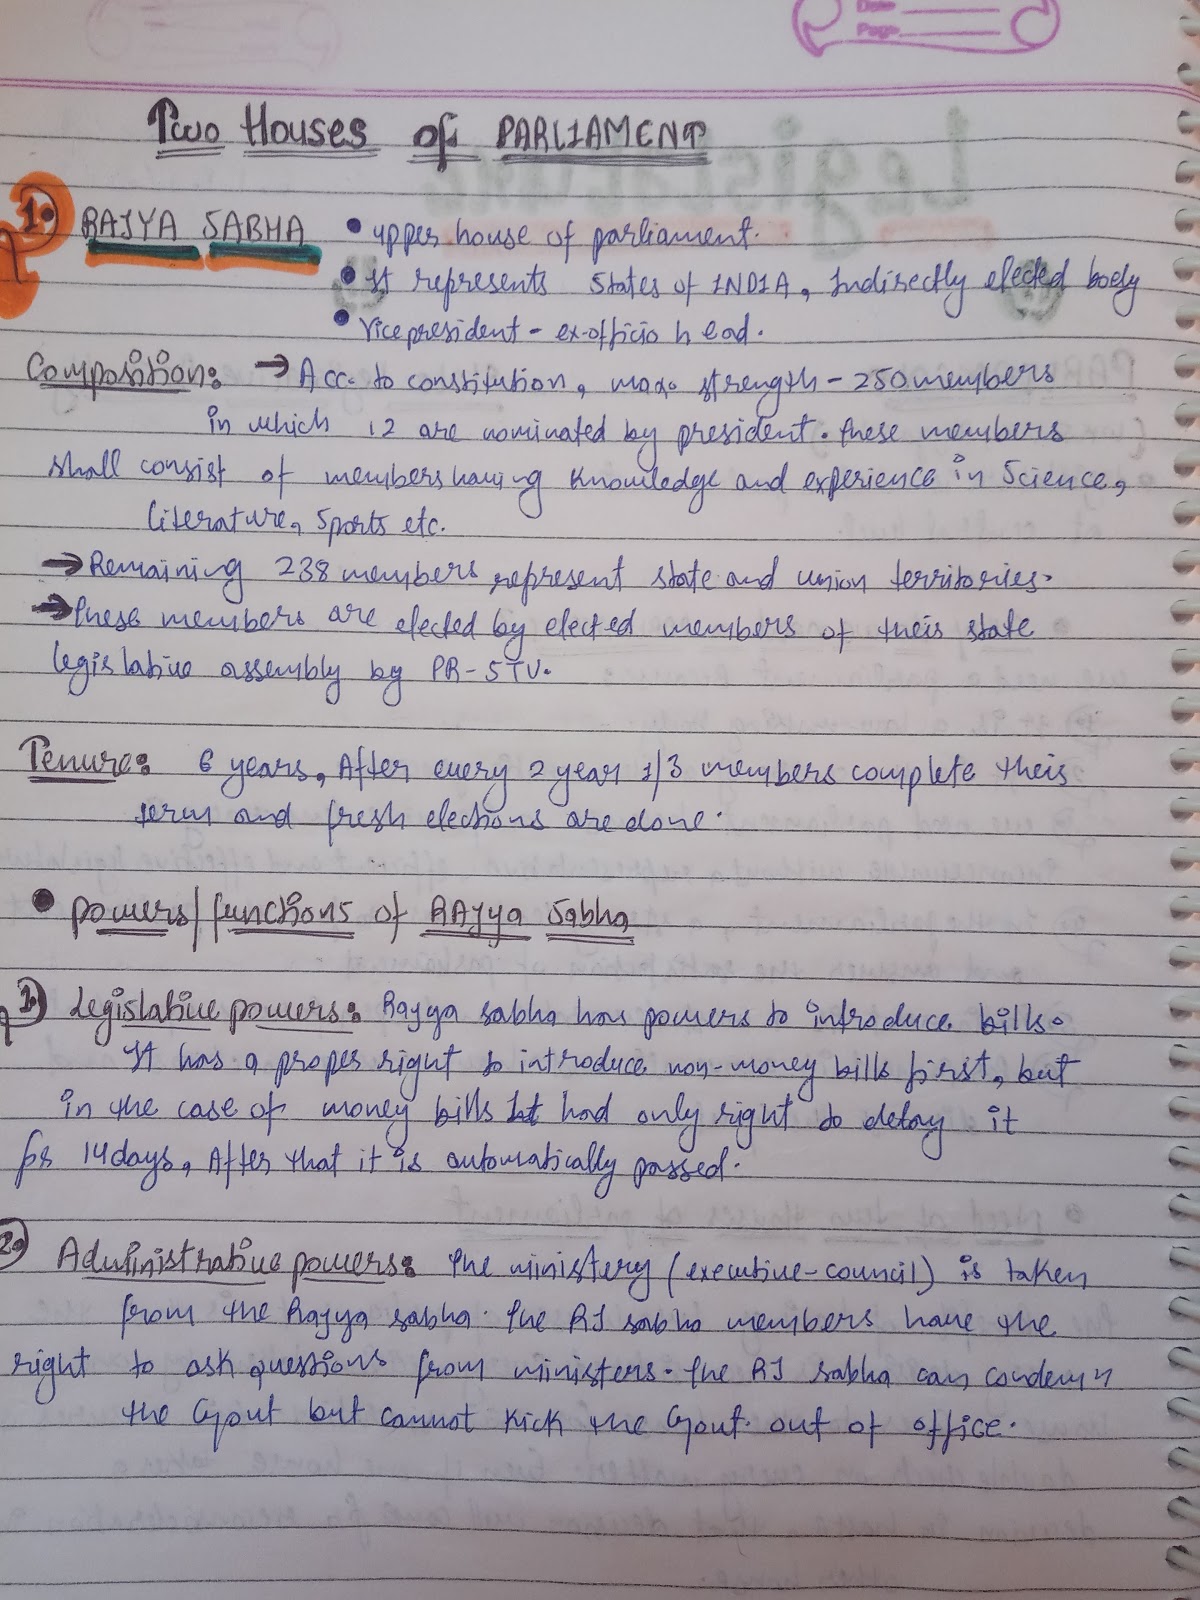 Date
Page
Two Houses of PARLIAMENT
1. RAJYA SABHA • upper house of parliament.
• It represents States of INDIA, Indirectly elected body
• Vice president - ex-officio head.
Composition: → Acc. to constitution, max. strength - 250 members
in which 12 are nominated by president. These members
shall consist of members having knowledge and experience in Science,
literature, Sports etc.
→ Remaining 238 members represent state and union territories.
→ These members are elected by elected members of their state
legislative assembly by PR-STV.
Tenure: 6 years, After every 2 year 1/3 members complete their
term and fresh elections are done.
• Powers/functions of RAjya Sabha
1. Legislative powers: Rajya sabha has powers to introduce bills.
It has a proper right to introduce non-money bills first, but
in the case of money bills It had only right to delay it
for 14 days, After that it is automatically passed.
2. Administrative powers: The ministery (executive-council) is taken
from the Rajya sabha. The RJ sabha members have the
right to ask questions from ministers. The RJ sabha can condemn
the Govt but cannot kick the Govt. out of office.